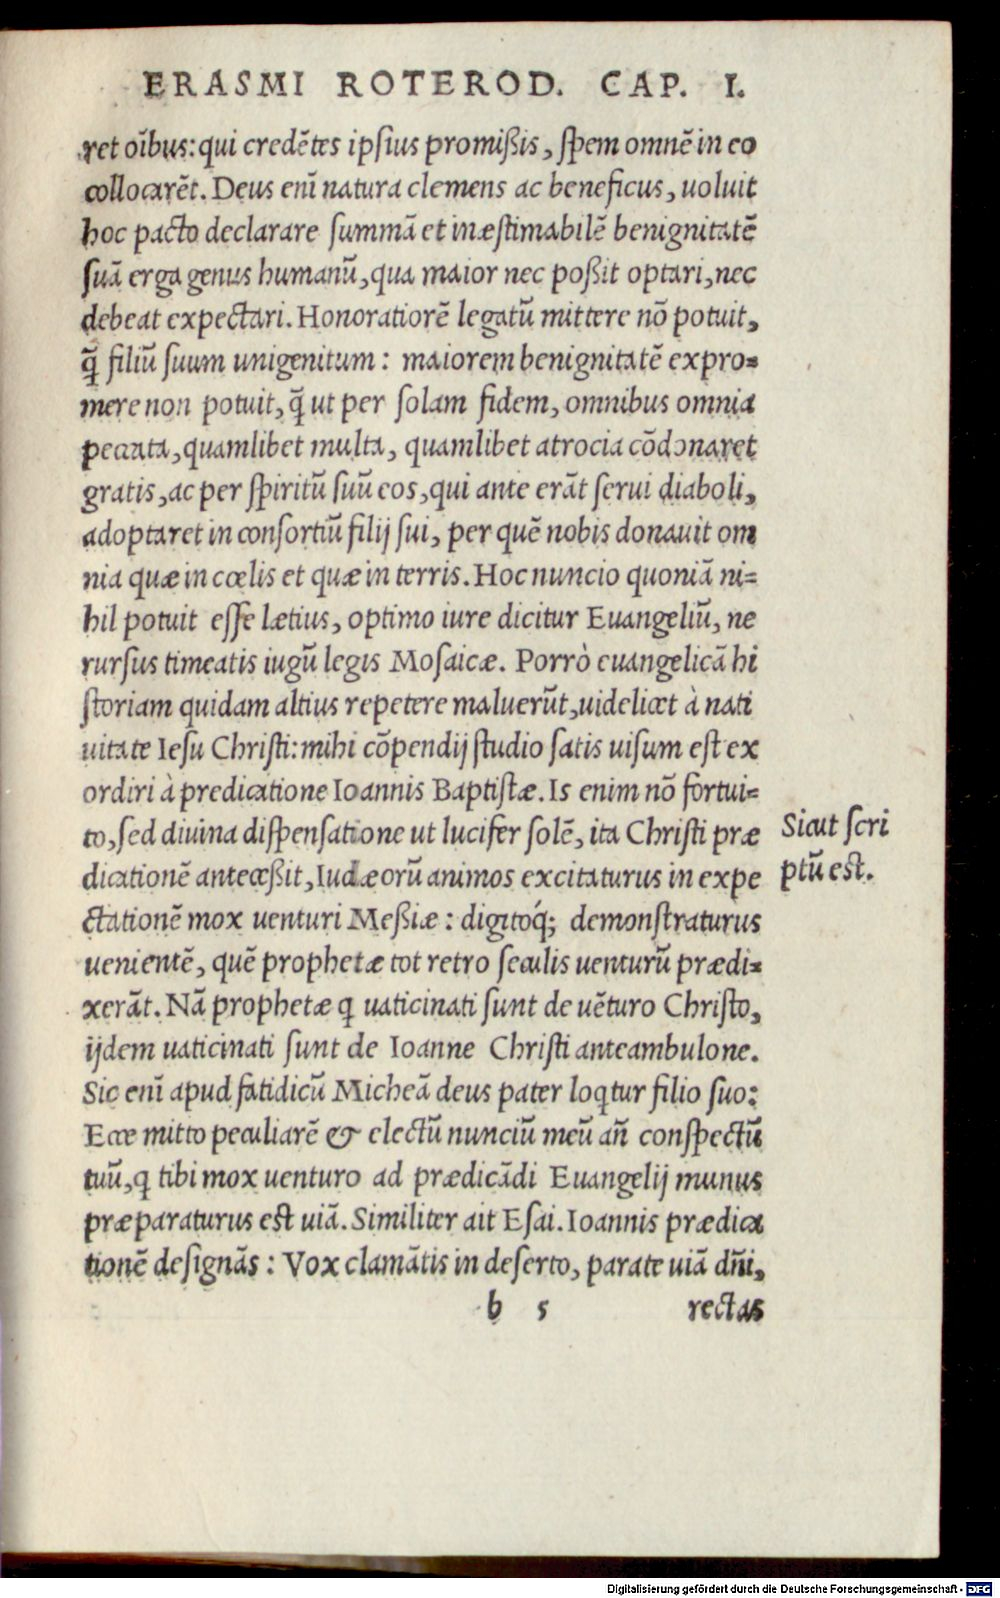 ERASMI ROTEROD. CAP. I.
ret oĩbus: qui credẽtes ipsius promißis, spem omnẽ in eo
collocarẽt. Deus enĩ natura clemens ac beneficus, uoluit
hoc pacto declarare summã et inæstimabilẽ benignitatẽ
suã erga genus humanũ, qua maior nec poßit optari, nec
debeat expectari. Honoratiorẽ legatũ mittere nõ potuit,
q̃ filiũ suum unigenitum: maiorem benignitatẽ expro=
mere non potuit, q̃ ut per solam fidem, omnibus omnia
peccata, quamlibet multa, quamlibet atrocia cõdonaret
gratis, ac per spiritũ suũ eos, qui ante erãt serui diaboli,
adoptaret in consortiũ filij sui, per quẽ nobis donauit om
nia quæ in cœlis et quæ in terris. Hoc nuncio quoniã ni=
hil potuit esse lætius, optimo iure dicitur Euangeliũ, ne
rursus timeatis iugũ legis Mosaicæ. Porrò euangelicã hi
storiam quidam altius repetere maluerũt, uidelicet à nati
uitate Iesu Christi: mihi cõpendij studio satis uisum est ex
ordiri à predicatione Ioannis Baptistæ. Is enim nõ fortui=
to, sed diuina dispensatione ut lucifer solẽ, ita Christi præ
dicationẽ anteceßit, Iudæorũ animos excitaturus in expe
ctationẽ mox uenturi Meßiæ: digitóq; demonstraturus
uenientẽ, quẽ prophetæ tot retro seculis uenturũ prædi=
xerãt. Nã prophetæ q uaticinati sunt de uẽturo Christo,
ijdem uaticinati sunt de Ioanne Christi anteambulone.
Sic enĩ apud fatidicũ Micheã deus pater loqtur filio suo:
Ecce mitto peculiarẽ & electũ nunciũ meũ añ conspectũ
tuũ, q tibi mox uenturo ad prædicãdi Euangelij munus
præparaturus est uiã. Similiter ait Esai. Ioannis prædica
tionẽ designãs: Vox clamãtis in deserto, parate uiã dñi,
b 5 rectas
Sicut scri
ptũ est.
Digitalisierung gefördert durch die Deutsche Forschungsgemeinschaft - DFG